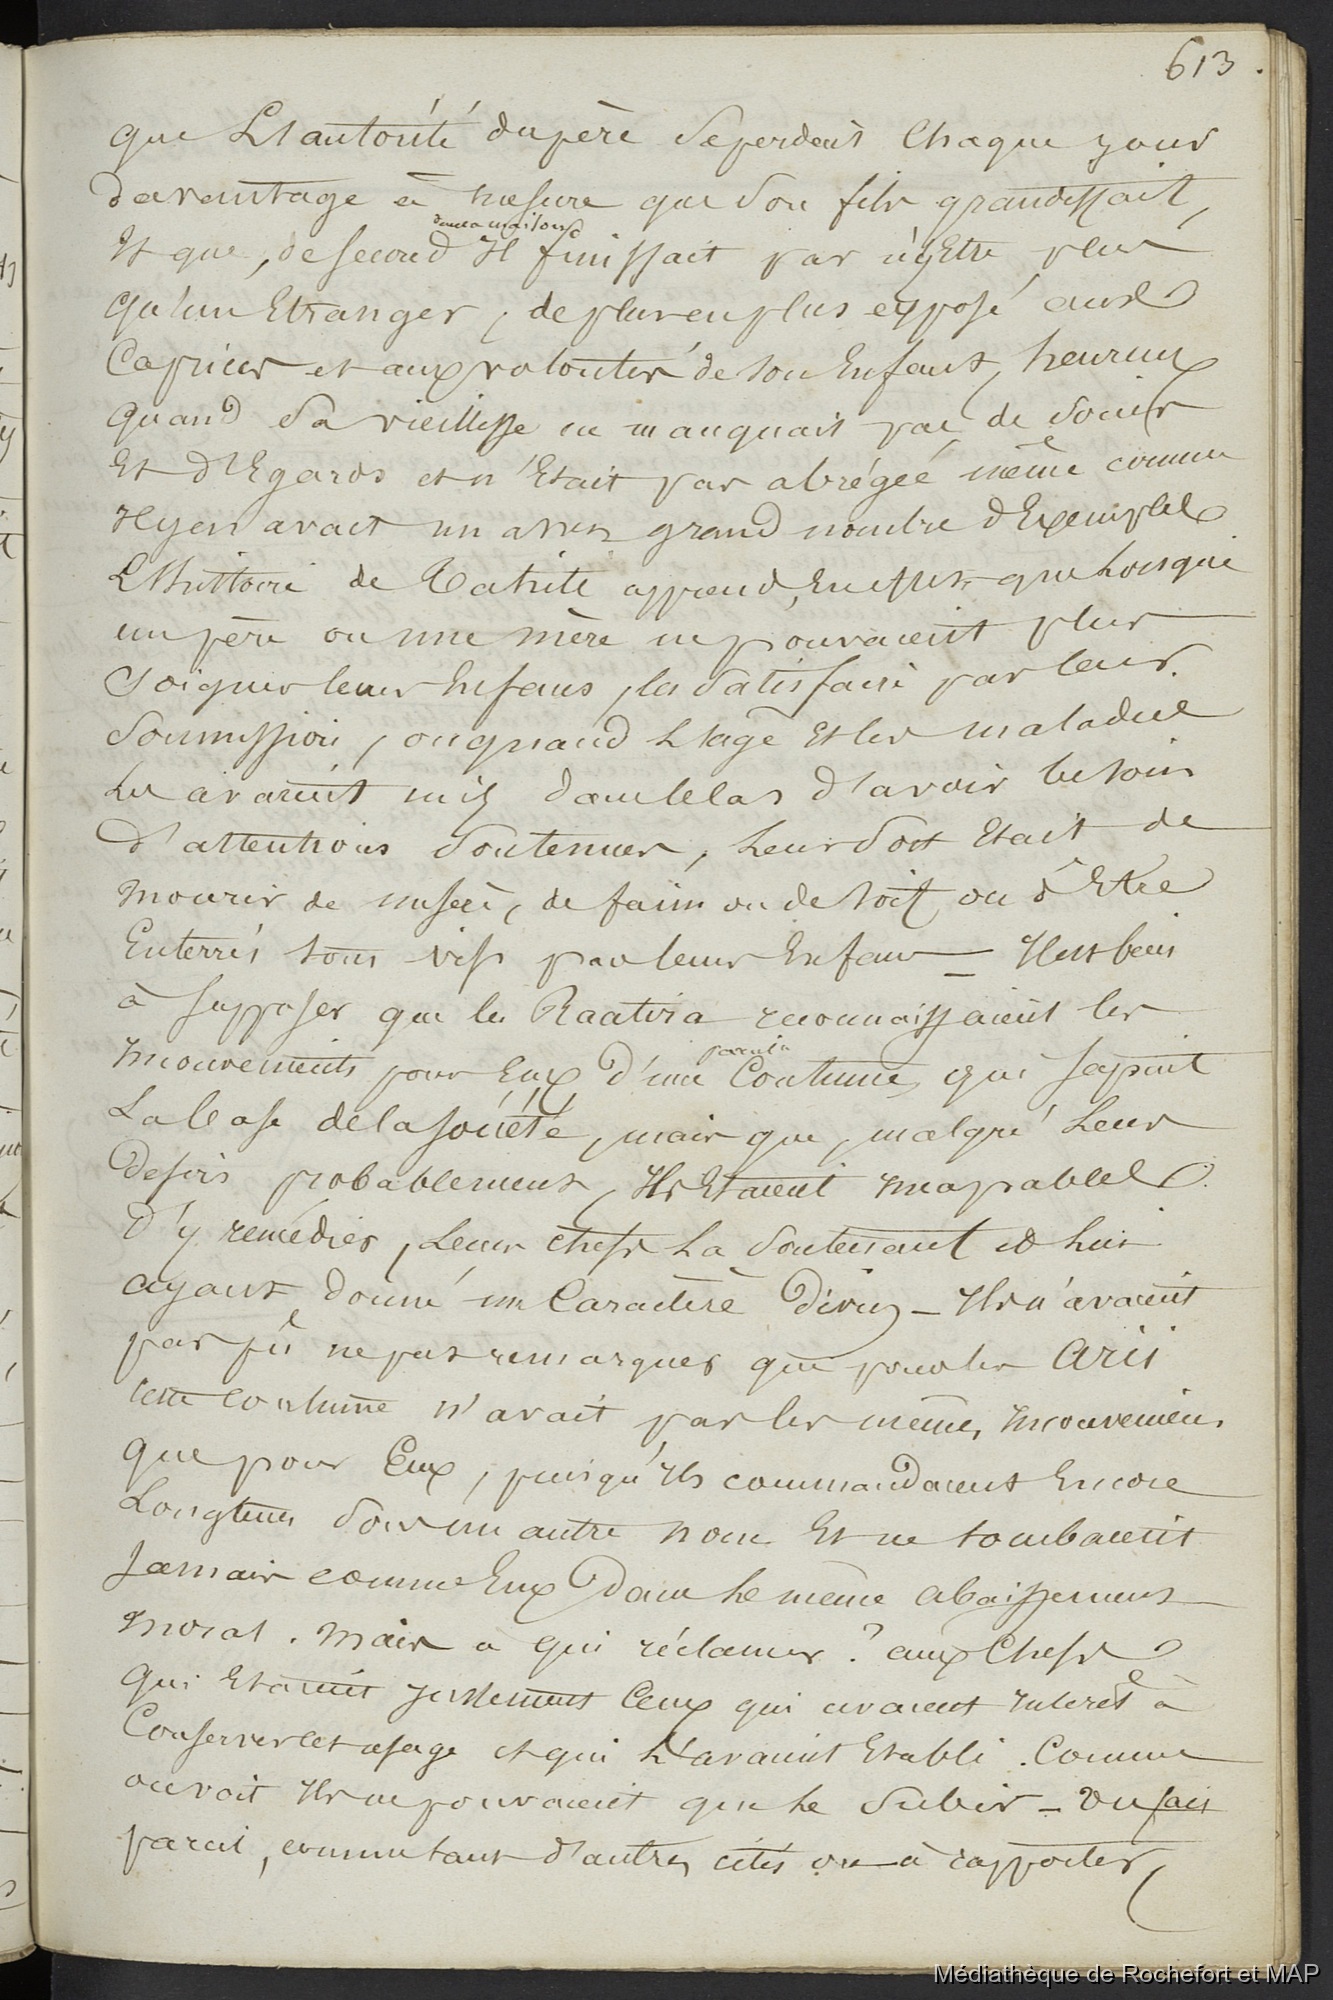 613.
que L'autorité du père se perdait Chaque jour
davantage à mesure que son fils grandissait,
Et que, de second dans la maison Il finissait par n'y Etre plus
qu'un Etranger, de plus en plus exposé aux
Caprices et aux volontés de son Enfant, heureux
quand sa vieillesse ne manquait pas de soins
Et d'Egards et n'Etait pas abrégée même comme
Il y en avait un assez grand nombre d'Exemples
L'histoire de Tahiti apprend, En effet que Lorsque
un père ou une mère ne pouvaient plus
soigner leurs Enfans, les satisfaire par leur
soumission, ou quand L'age Et les maladies
Les avaient mis dans le cas d'avoir besoin
d'attentions soutenues, Leur sort Etait de
mourir de misère, de faim ou de soif, ou d'Etre
Enterrés tous vifs par leurs Enfans – Il est bien
à supposer que les Raatira reconnaissaient les
Inconvenients pour Eux d'une pareille Coutume, qui sapait
La base de la société, mais que, malgré Leur
desir probablement, Ils Etaient Incapables
d'y remédier, Leurs chefs La soutenant et Lui
ayant donné un Caractère divin – Ils n'avaient
pas pû ne pas remarquer que pour les Arii
cette coutume n'avait pas les mêmes Inconveniens
que pour Eux, puisqu'Ils commandaient Encore
Longtems sous un autre nom Et ne tombaient
Jamais comme Eux dans Le même abaissement
moral. Mais à qui réclamer? aux Chefs
qui Etaient justement Ceux qui avaient Interêt à
Conserver cet usage et qui L'avaient Etabli. Comme
on voit Ils ne pouvaient que Le subir – Un fait
pareil, comme tant d'autres cités ou à rapporter,
Médiathèque de Rochefort et MAP